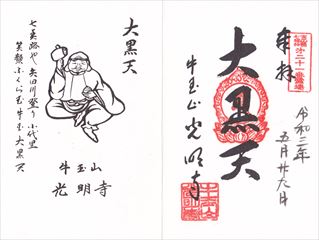 奉拝
大黒天
牛玉山光明寺
令和二年
五月廿九日
大黒天
七美路や矢田川登り小代里
笑顔ふくらむ牛玉大黒天
牛玉山
光明寺